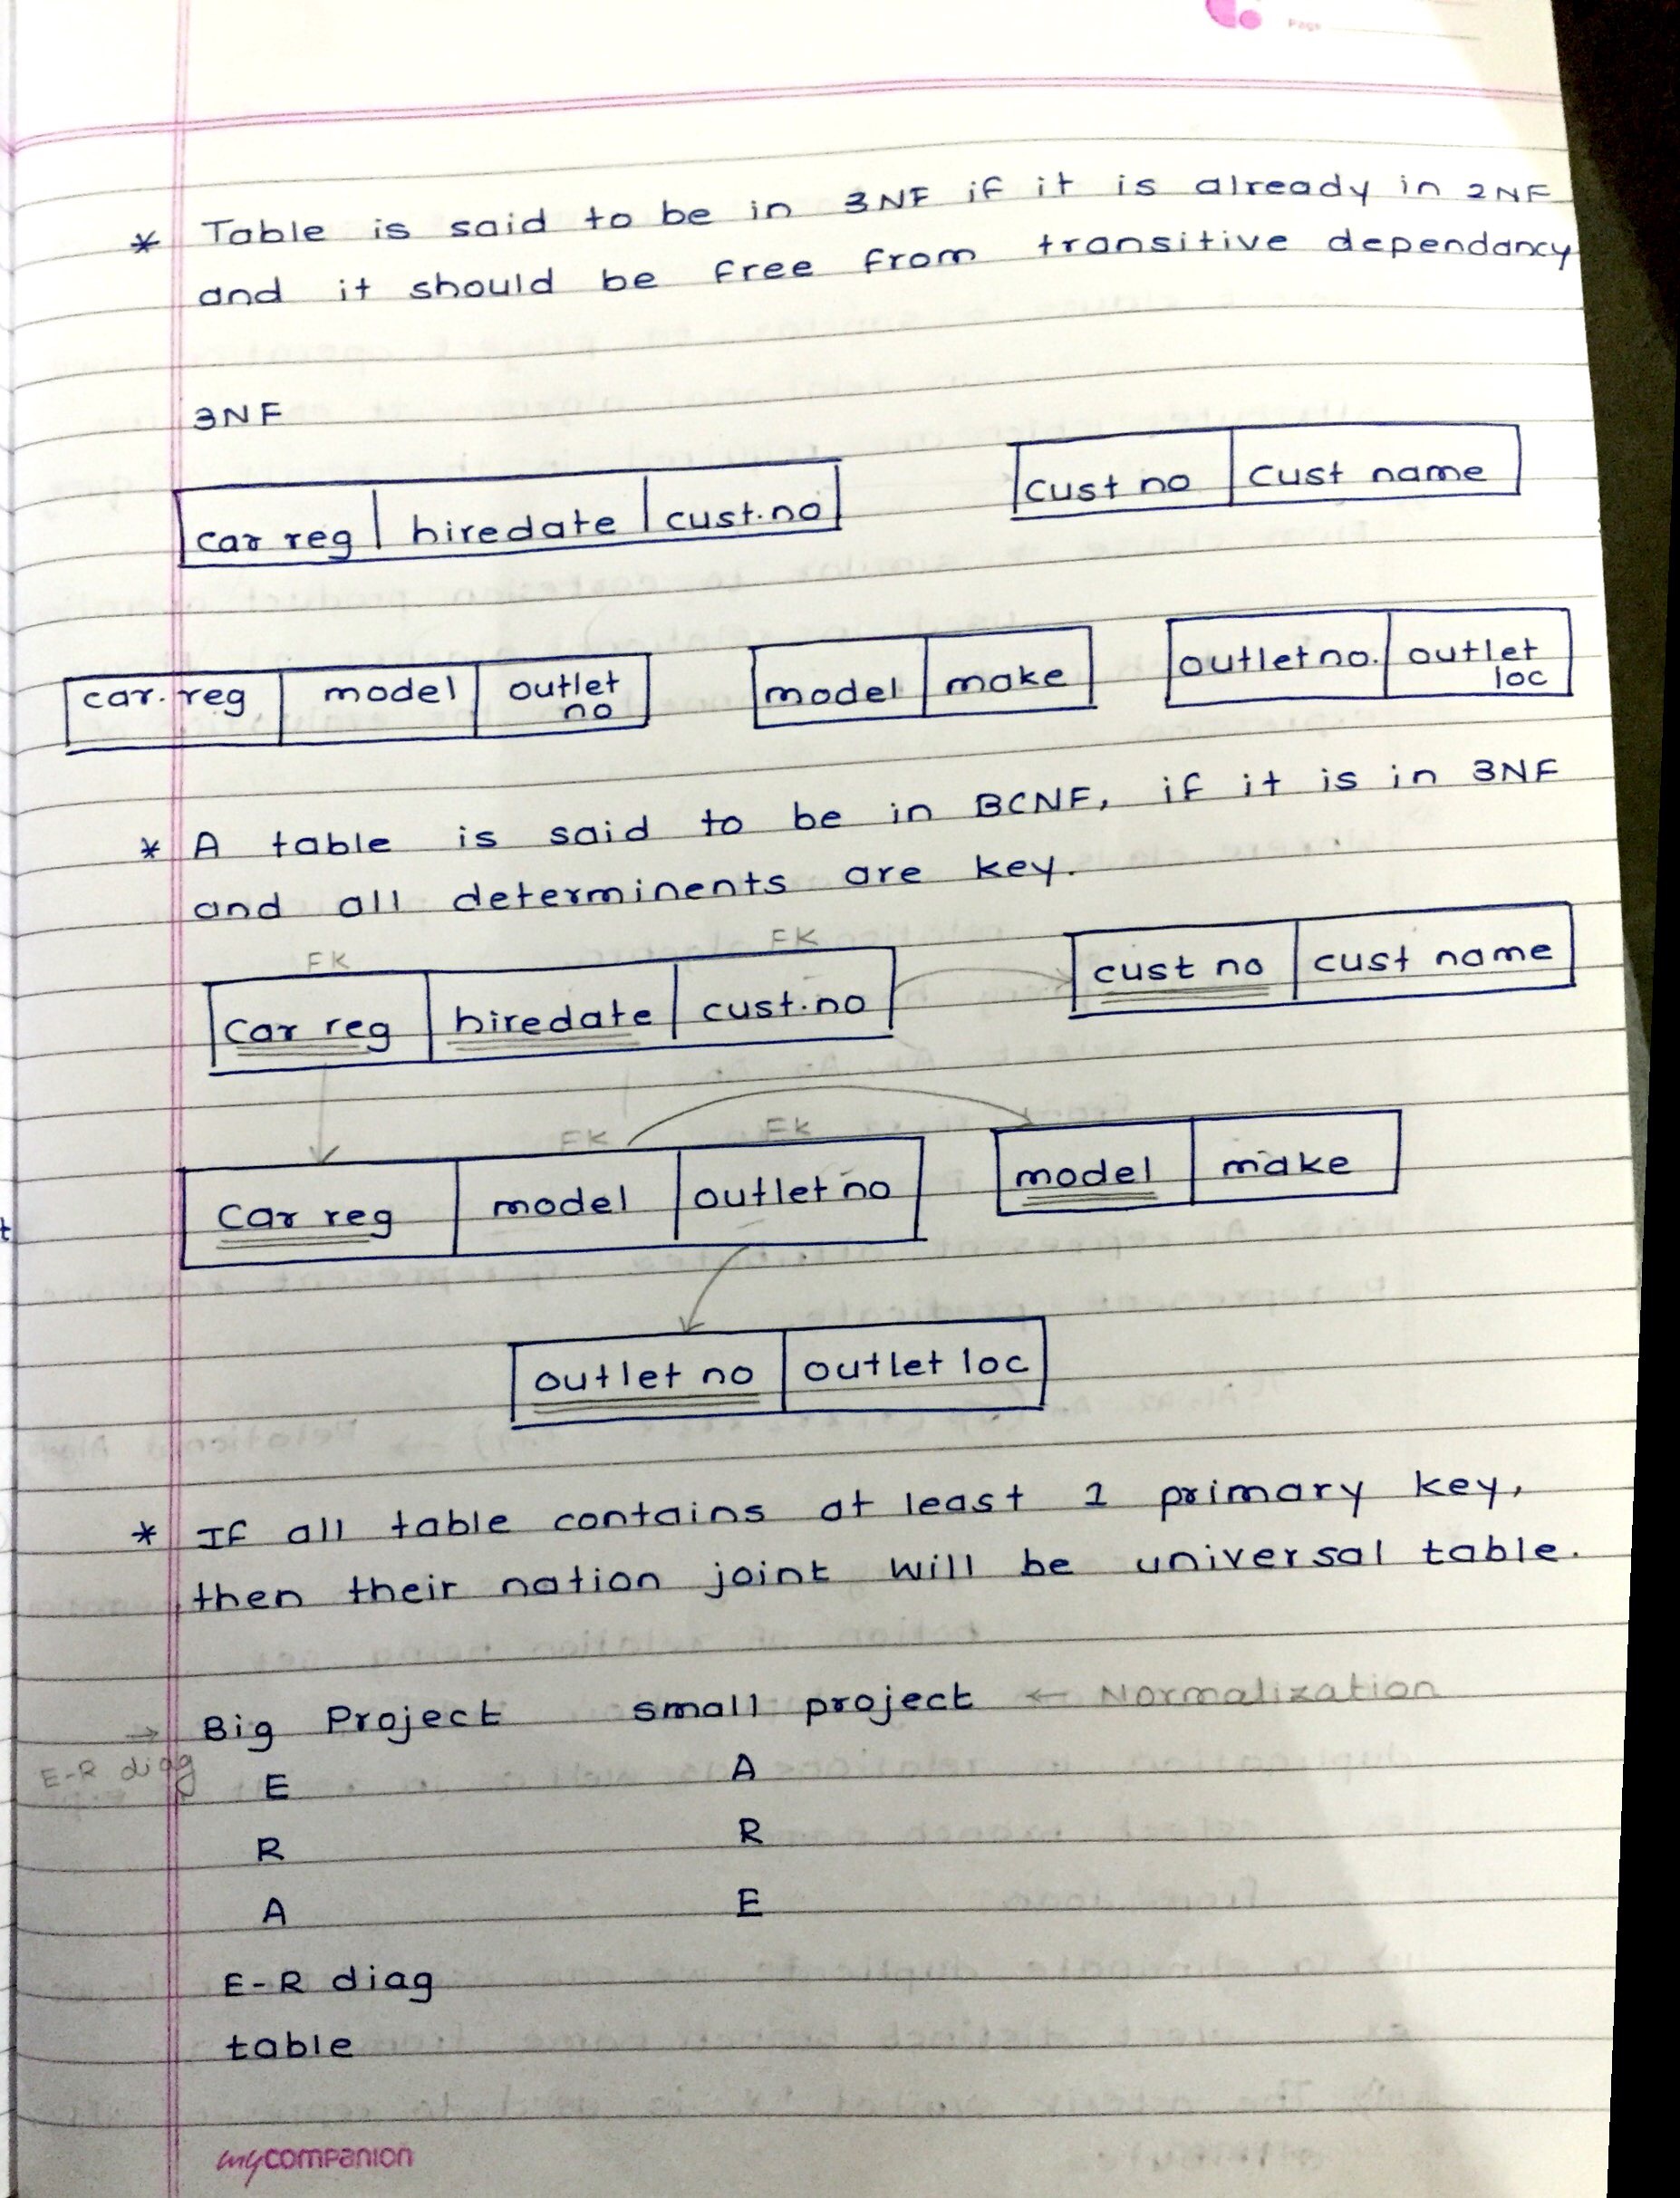 Page
* Table is said to be in 3NF if it is already in 2NF
and it should be free from transitive dependancy
3NF
car reg hiredate cust.no cust no cust name
car.reg model outlet no model make outlet no. outlet loc
* A table is said to be in BCNF, if it is in 3NF
and all determinents are key.
FK FK
car reg hiredate cust.no cust no cust name
FK FK
car reg model outlet no model make
outlet no outlet loc
* If all table contains at least 1 primary key,
then their nation joint will be universal table.
→ Big Project small project ← Normalization
E-R diag
E A
R R
A E
E-R diag
table
mycompanion